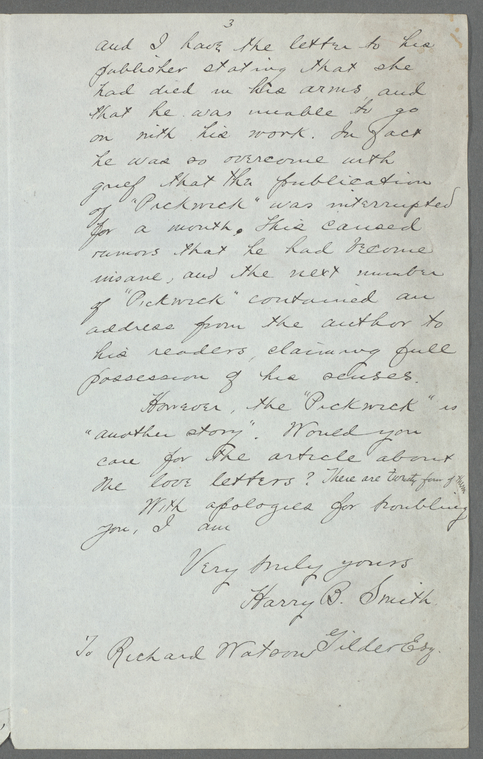 3
and I have the letter to his
publisher stating that she
had died in his arms and
that he was unable to go
on with his work. In fact
he was so overcome with
grief that the publication
of "Pickwick" was interrupted
for a month. This caused
rumors that he had become
insane, and the next number
of "Pickwick" contained an
address from the author to
his readers, claiming full
possession of his senses.
However, the "Pickwick" is
"another story". Would you
care for the article about
the love letters? There are twenty four of them
With apologies for troubling
you, I am
Very truly yours
Harry B. Smith.
To Richard Watson Gilder Esq.